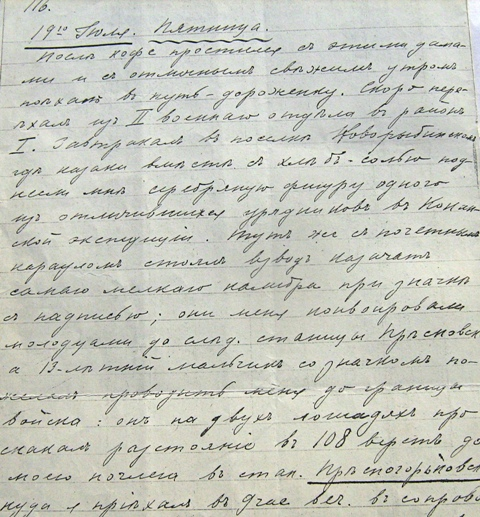 116.
19го Іюля. Пятница.
Послѣ кофе простился съ этими дама-
ми и съ отличнымъ свѣжимъ утромъ
поѣхалъ въ путь-дороженку. Скоро пере-
ѣхалъ изъ II военнаго отдѣла въ районъ
I. Завтракалъ въ поселкѣ Новорыбинскомъ
гдѣ казаки вмѣстѣ съ хлѣбъ-солью под-
несли мнѣ серебряную фигуру одного
изъ отличившихся урядниковъ въ Кокан-
ской экспедиціи. Тутъ же съ почетнымъ
карауломъ стоялъ взводъ казачатъ
самаго мелкаго калибра при значкѣ
съ надписью; они меня конвоировали
молодцами до слѣд. станицы Прѣсновск
а 13-лѣтній мальчикъ со значкомъ по-
желалъ проводить меня до границы
войска: онъ на двухъ лошадяхъ про-
скакалъ разстояніе въ 108 верстъ до
моего ночлега въ стан. Прѣсногорьковск
куда я пріѣхалъ въ 9 час. веч. въ сопров